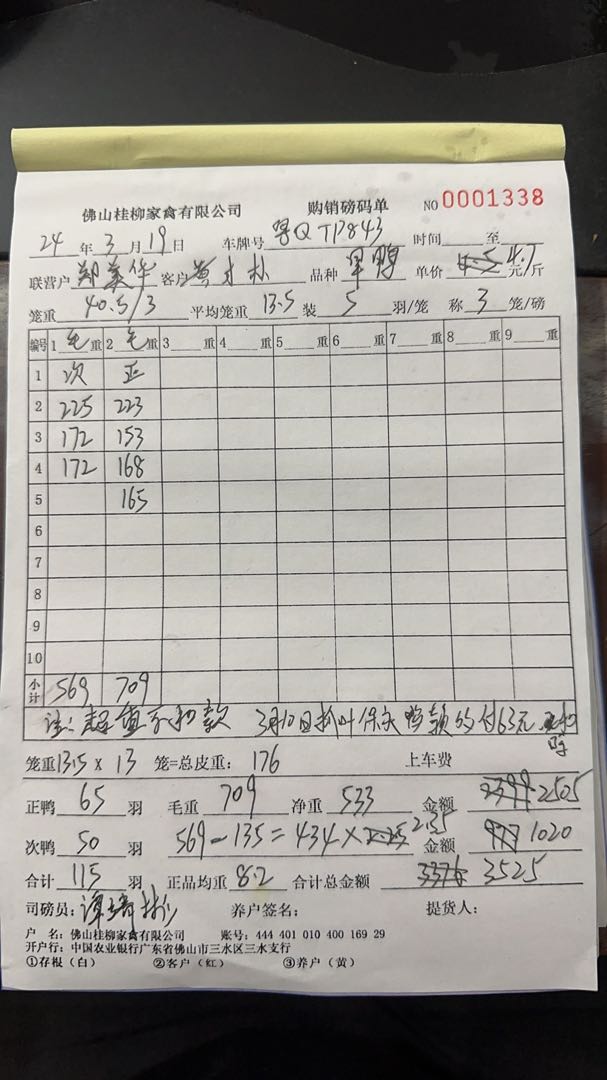 佛山桂柳家禽有限公司 购销磅码单 NO 0001338
24 年 3 月 19 日 车牌号 粤QTP843 时间 至
联营户 郑美华 客户 黄才朴 品种 单价 4.7 元/斤
笼重 40.5/3 平均笼重 13.5 装 5 羽/笼 称 3 笼/磅
编号 1 毛 重 2 毛 重 3 重 4 重 5 重 6 重 7 重 8 重 9 重
1 次 正
2 225 223
3 172 153
4 172 168
5 165
6
7
8
9
10
小计 569 709
注: 不扣款 3月10日 付63元
笼重 13.5 x 13 笼=总皮重: 176 上车费
正鸭 65 羽 毛重 709 净重 533 金额 2399 2505
次鸭 50 羽 569-135=434× 2.25 2.35 金额 977 1020
合计 115 羽 正品均重 8.2 合计总金额 3376 3525
司磅员: 谭 养户签名: 提货人:
户 名: 佛山桂柳家禽有限公司 账号: 444 401 010 400 169 29
开户行: 中国农业银行广东省佛山市三水区三水支行
①存根(白) ②客户(红) ③养户(黄)